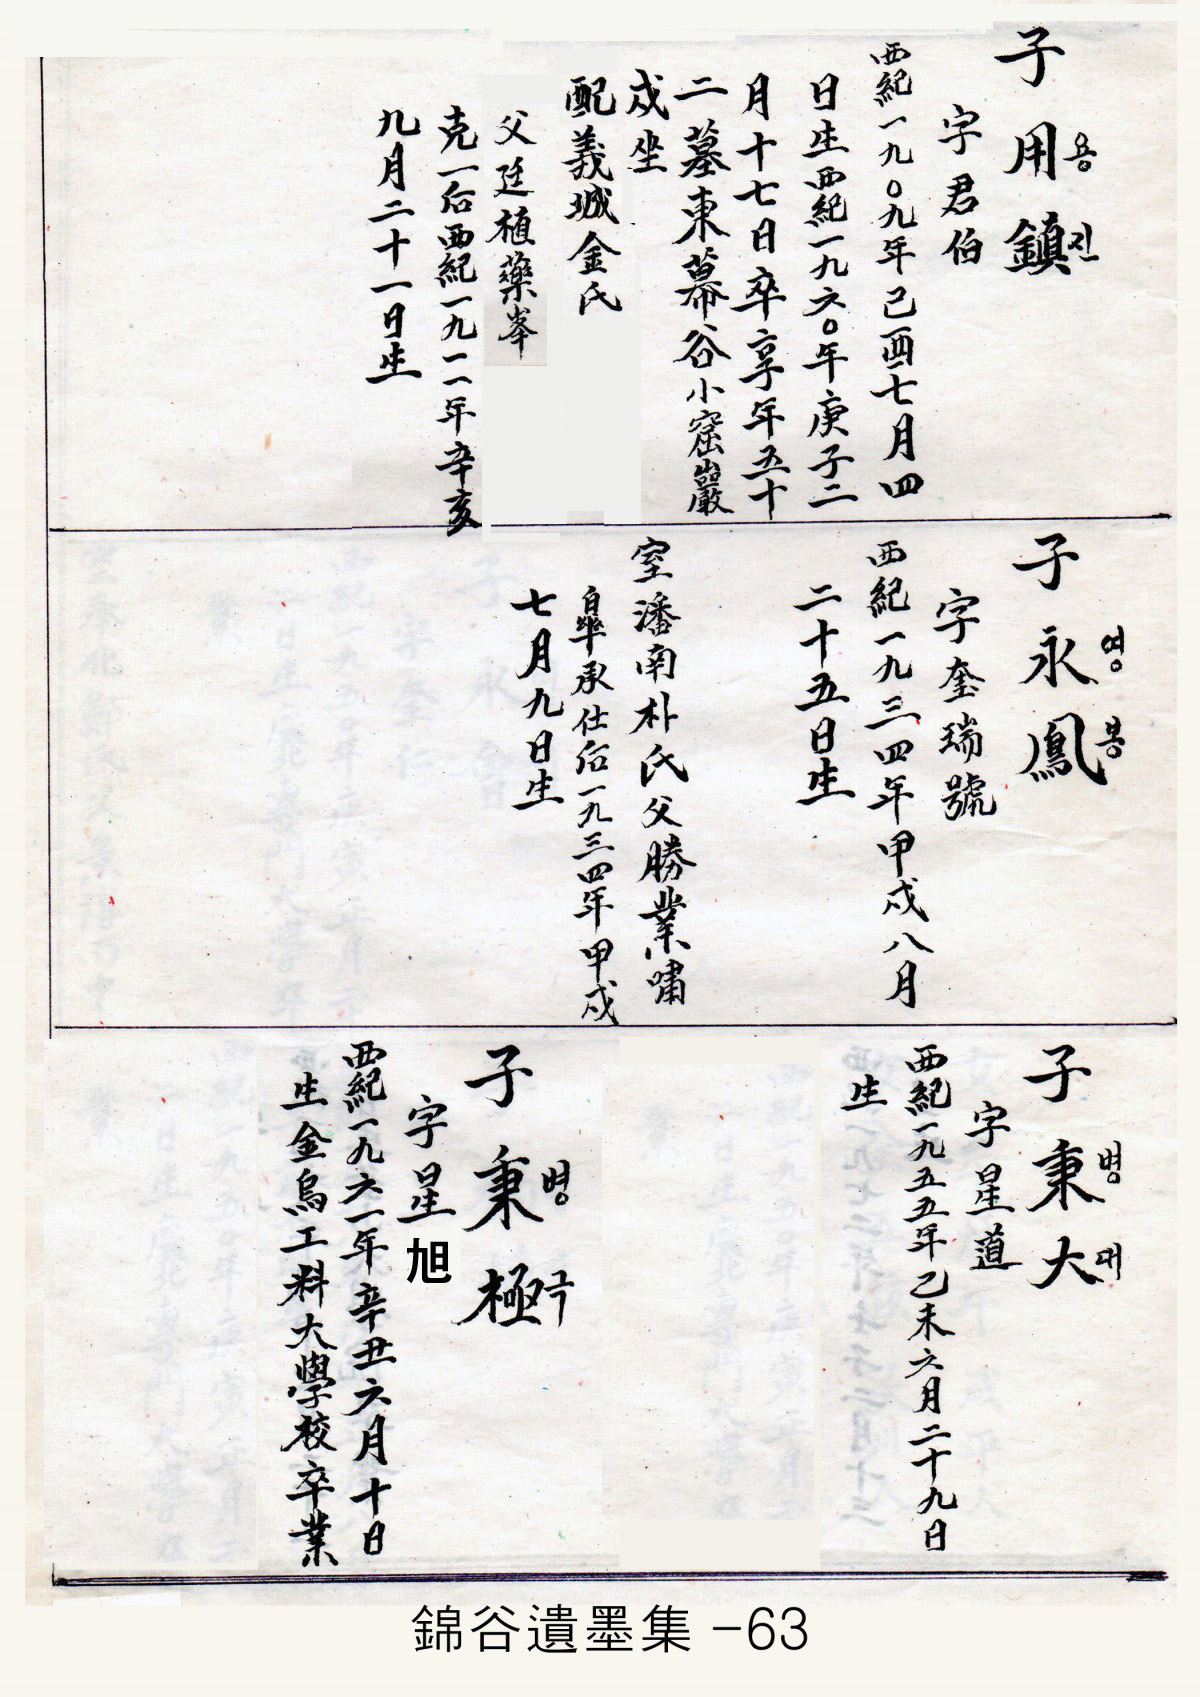 子用鎮
용진
字君伯
西紀一九○九年己酉七月四
日生西紀一九六○年庚子二
月十七日卒享年五十
二墓東幕谷小窟巖
戌坐
配義城金氏
父廷植藥峯
克一后西紀一九一一年辛亥
九月二十一日生
子永鳳
영봉
字奎瑞號
西紀一九三四年甲戌八月
二十五日生
室潘南朴氏父勝業嘯
皐承仕后一九三四年甲戌
七月九日生
子秉大
병대
字星道
西紀一九五五年乙未六月二十九日
生
子秉極
병극
字星旭
西紀一九六一年辛丑六月十日
生金烏工科大學校卒業
錦谷遺墨集 -63